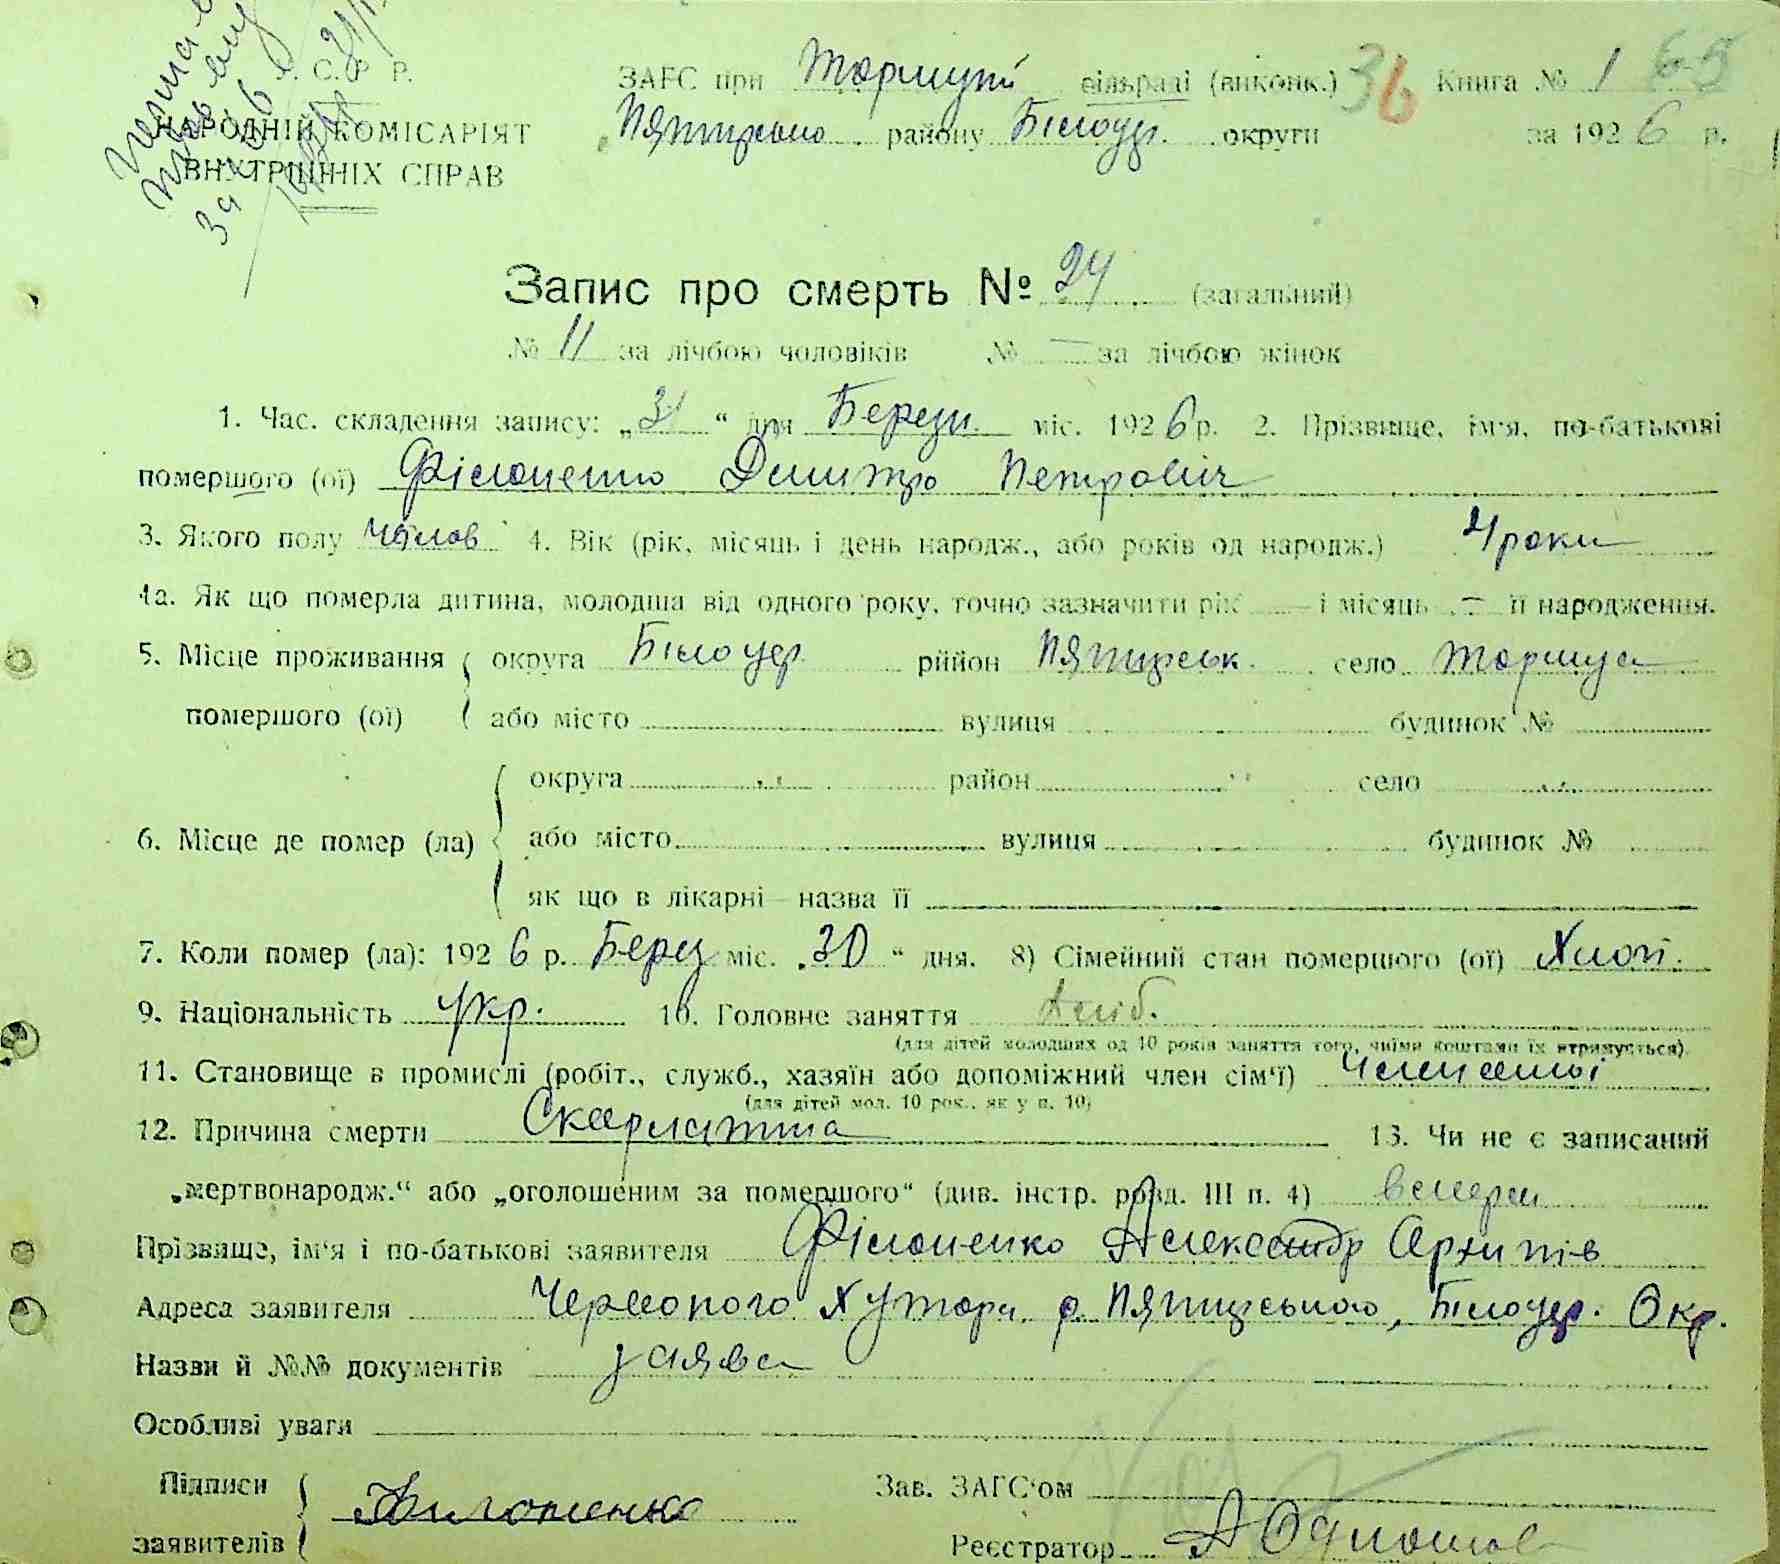 . С. Р Р.
ЗАГС при Торицкій сільраді (виконк.) 36 Книга № 1 65
НАРОДНІЙ КОМІСАРІЯТ
ВНУТРІШНІХ СПРАВ
району Білоцер. округи за 1926 р.
Запис про смерть № 24 (загальний)
№ 11 за лічбою чоловіків № — за лічбою жінок
1. Час. складення запису: „31“ дня Березн. міс. 1926 р. 2. Прізвище, ім'я, по-батькові
помершого (ої) Філоненко Дмитро Петрович
3. Якого полу Чолов 4. Вік (рік, місяць і день народж., або років од народж.) 4 роки
4а. Як що померла дитина, молодша від одного року, точно зазначити рік — і місяць — її народження.
5. Місце проживання округа Білоцер район село Ториця
помершого (ої) або місто вулиця будинок №
округа „ район „ село „
6. Місце де помер (ла) або місто вулиця будинок №
як що в лікарні назва її
7. Коли помер (ла): 1926 р. Берез міс. „30“ дня. 8) Сімейний стан помершого (ої) Хлоп.
9. Національність Укр. 10. Головне заняття Хліб.
(для дітей молодших од 10 років заняття того, чиїми коштами їх втримується)
11. Становище в промислі (робіт., служб., хазяїн або допоміжний член сім'ї) Член сімї
(для дітей мол. 10 рок., як у п. 10)
12. Причина смерти Скарлатина 13. Чи не є записаний
„мертвонародж.“ або „оголошеним за помершого“ (див. інстр. розд. III п. 4) вмерш
Прізвище, ім'я і по-батькові заявителя Філоненко Александр Архипів
Адреса заявителя Червоного Хутора р. Пятигірського, Білоцер. Окр.
Назви й №№ документів заява
Особливі уваги
Підписи Зав. ЗАГС'ом
заявителів Филоненко Реєстратор